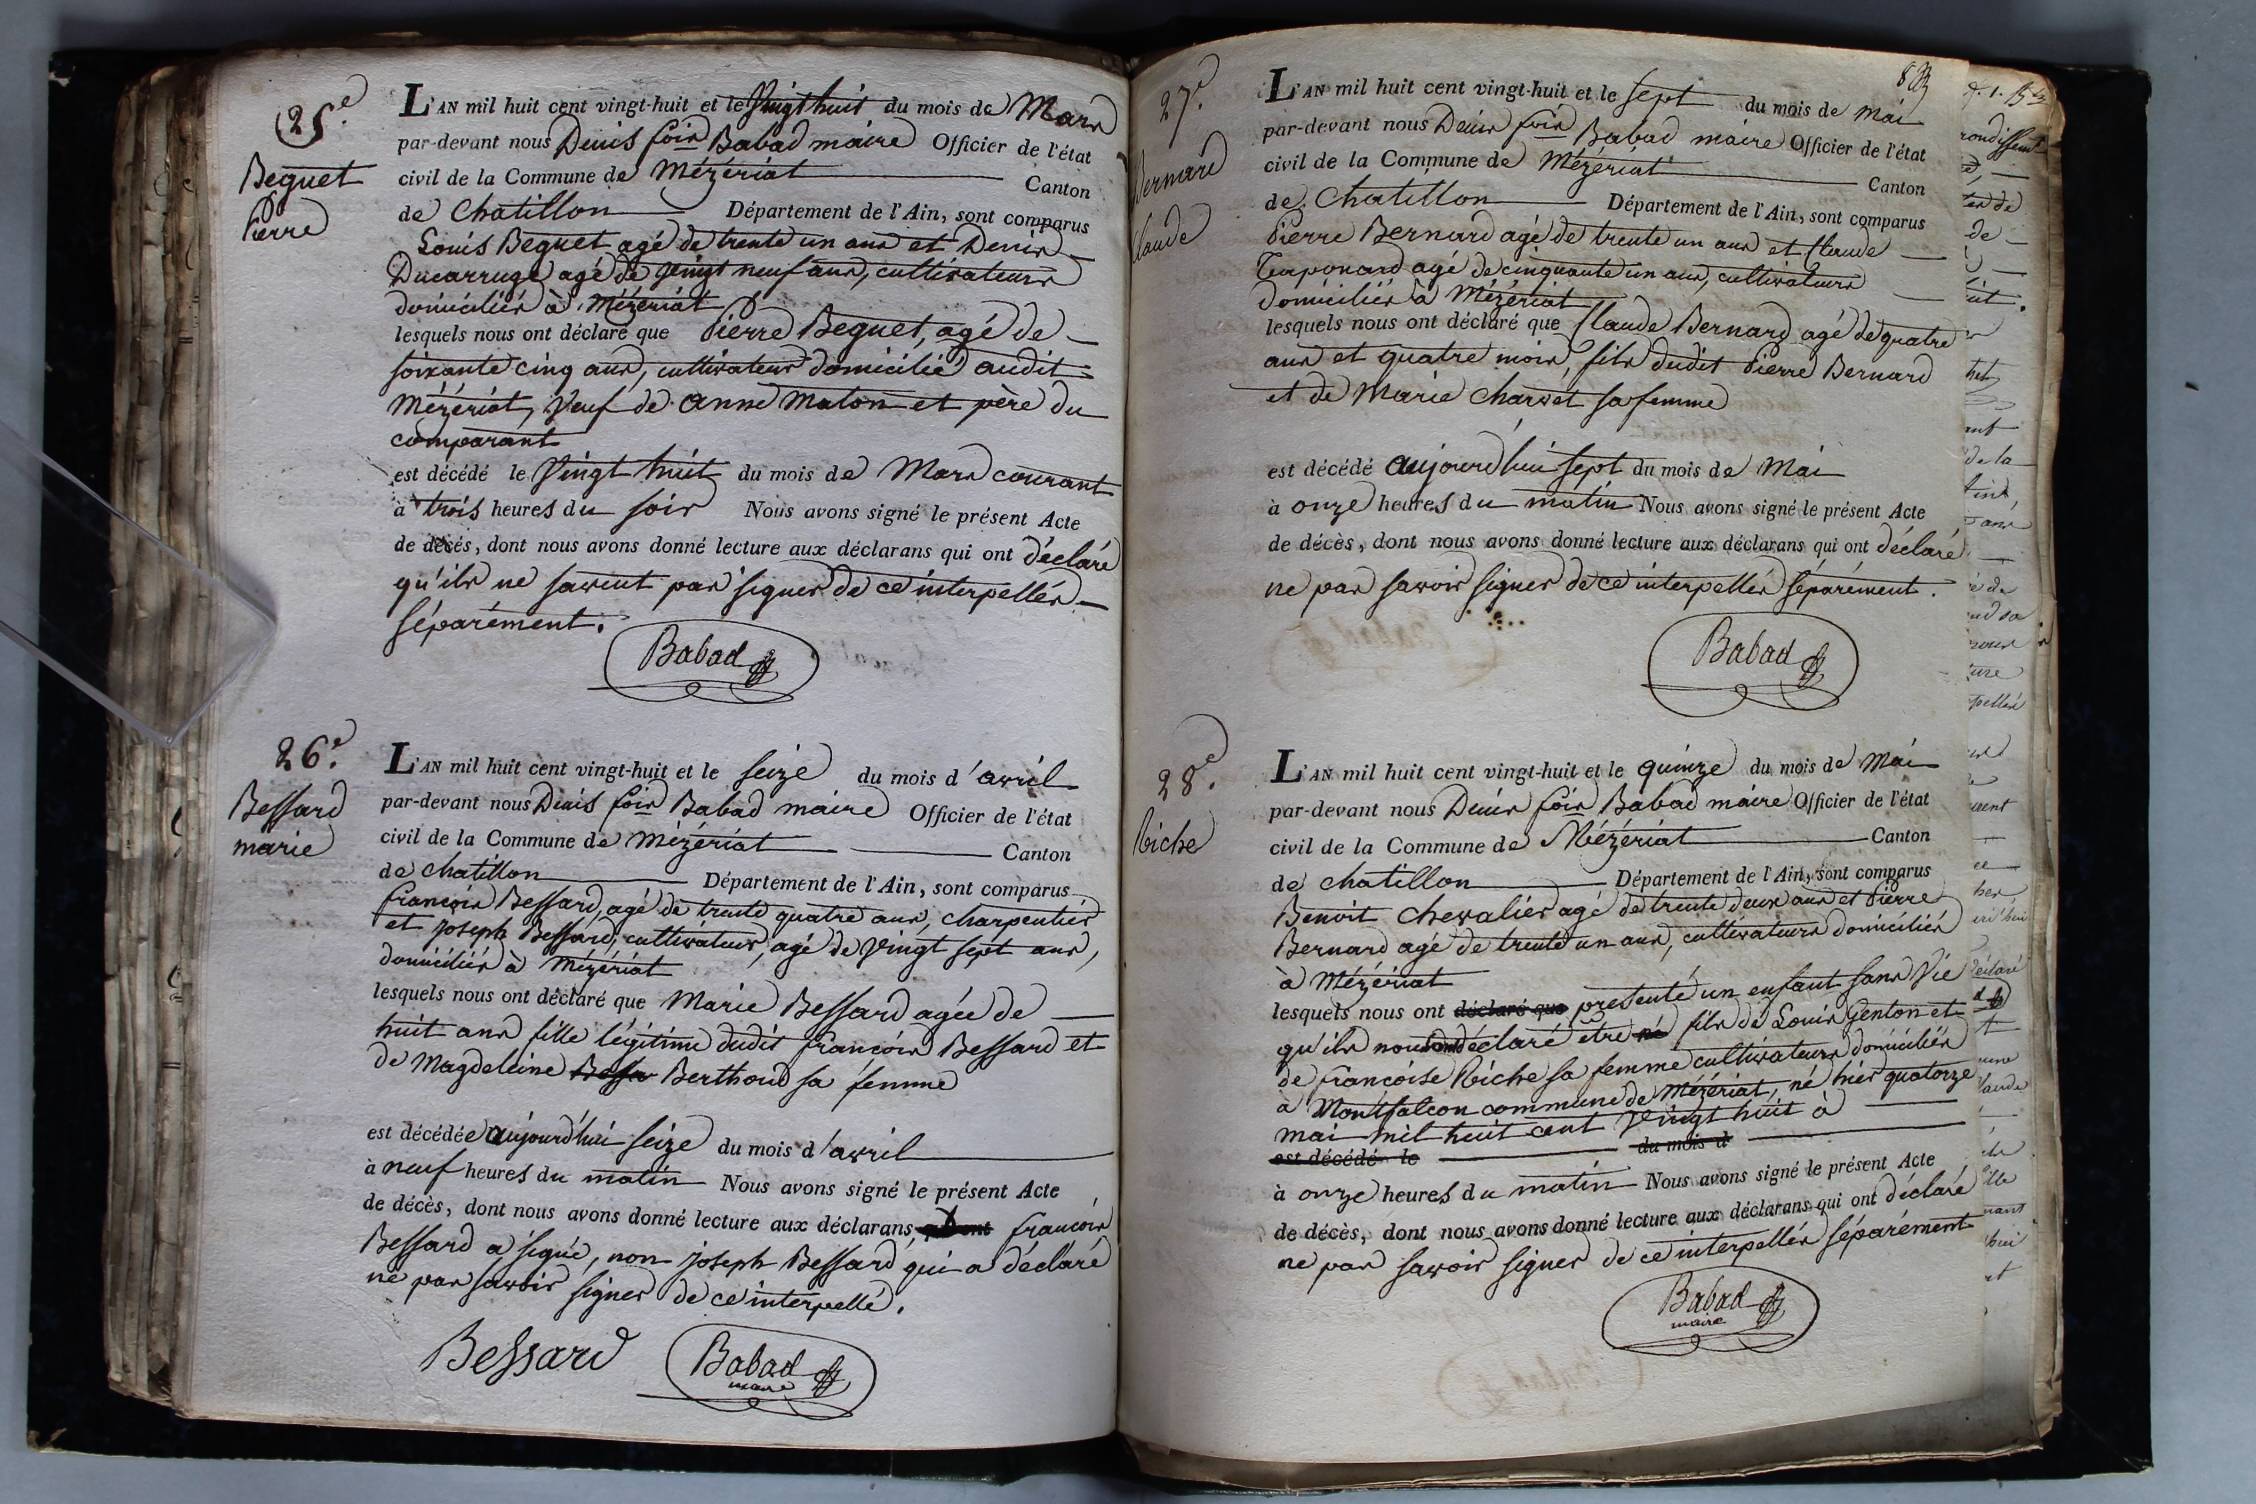 25.e
Beguet
Pierre
L'AN mil huit cent vingt-huit et le vingt huit du mois de Mars
par-devant nous Denis foix Babad maire Officier de l'état
civil de la Commune de Mézériat Canton
de Chatillon Département de l'Ain, sont comparus
Louis Beguet agé de trente un ans et Denis
Ducarruge agé de vingt neuf ans, cultivateurs
domiciliés à Mézériat
lesquels nous ont déclaré que Pierre Beguet, agé de
soixante cinq ans, cultivateur domicilié audit
Mézériat, veuf de anne Maton et père du
comparant
est décédé le vingt huit du mois de Mars courant
à trois heures du soir Nous avons signé le présent Acte
de décés, dont nous avons donné lecture aux déclarans qui ont déclaré
qu'ils ne savent pas signer de ce interpellés
séparément.
Babad
26.e
Bessard
marie
L'AN mil huit cent vingt-huit et le seize du mois d'avril
par-devant nous Denis foix Babad maire Officier de l'état
civil de la Commune de Mézériat Canton
de chatillon Département de l'Ain, sont comparus
françois Bessard, agé de trente quatre ans, charpentier
et joseph Bessard, cultivateur, agé de vingt sept ans,
domiciliés à Mézériat
lesquels nous ont déclaré que Marie Bessard agée de
huit ans fille légitime dudit françois Bessard et
de Magdeleine Berthoud sa femme
est décédée aujourd'hui seize du mois d'avril
à neuf heures du matin Nous avons signé le présent Acte
de décès, dont nous avons donné lecture aux déclarans, qui ont françois
Bessard a signé, non joseph Bessard qui a déclaré
ne pas savoir signer de ce interpellé.
Bessard Babad
maire
27.e
Bernard
Claude
L'AN mil huit cent vingt-huit et le sept du mois de Mai
par-devant nous Denis foix Babad maire Officier de l'état
civil de la Commune de Mézériat Canton
de Chatillon Département de l'Ain, sont comparus
Pierre Bernard agé de trente un ans et Claude
Taponard agé de cinquante un ans, cultivateurs
domiciliés à Mézériat
lesquels nous ont déclaré que Claude Bernard agé de quatre
ans et quatre mois, fils dudit Pierre Bernard
et de Marie Charvet sa femme
est décédé aujourd'hui sept du mois de Mai
à onze heures du matin Nous avons signé le présent Acte
de décès, dont nous avons donné lecture aux déclarans qui ont déclaré
ne pas savoir signer de ce interpellés séparément.
Babad
28.e
Riche
L'AN mil huit cent vingt-huit et le quinze du mois de Mai
par-devant nous Denis foix Babad maire Officier de l'état
civil de la Commune de Mézériat Canton
de chatillon Département de l'Ain, sont comparus
Benoit Chevalier agé de trente deux ans et Pierre
Bernard agé de trente un ans, cultivateurs domiciliés
à Mézériat
lesquels nous ont déclaré que presenté un enfant sans Vie
qu'ils nous ont déclaré être né fils de Louis Genton et
de françoise Riche sa femme cultivateurs domiciliés
à Montfalcon commune de Mézériat, né hier quatorze
mai mil huit cent vingt huit à
est décédé le du mois d
à onze heures du matin Nous avons signé le présent Acte
de décès, dont nous avons donné lecture aux déclarans qui ont déclaré
ne pas savoir signer de ce interpellés séparément
Babad
maire